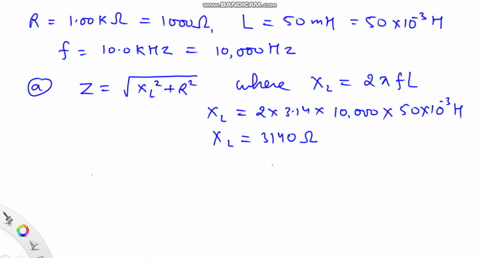 WWW.BANDICAM.COM
R = 1.00 KΩ = 1000Ω, L = 50 mH = 50 × 10⁻³ H
f = 10.0 KHZ = 10,000 HZ
ⓐ Z = √(X_L² + R²) where X_L = 2πfL
X_L = 2 × 3.14 × 10,000 × 50×10⁻³ H
X_L = 3140 Ω